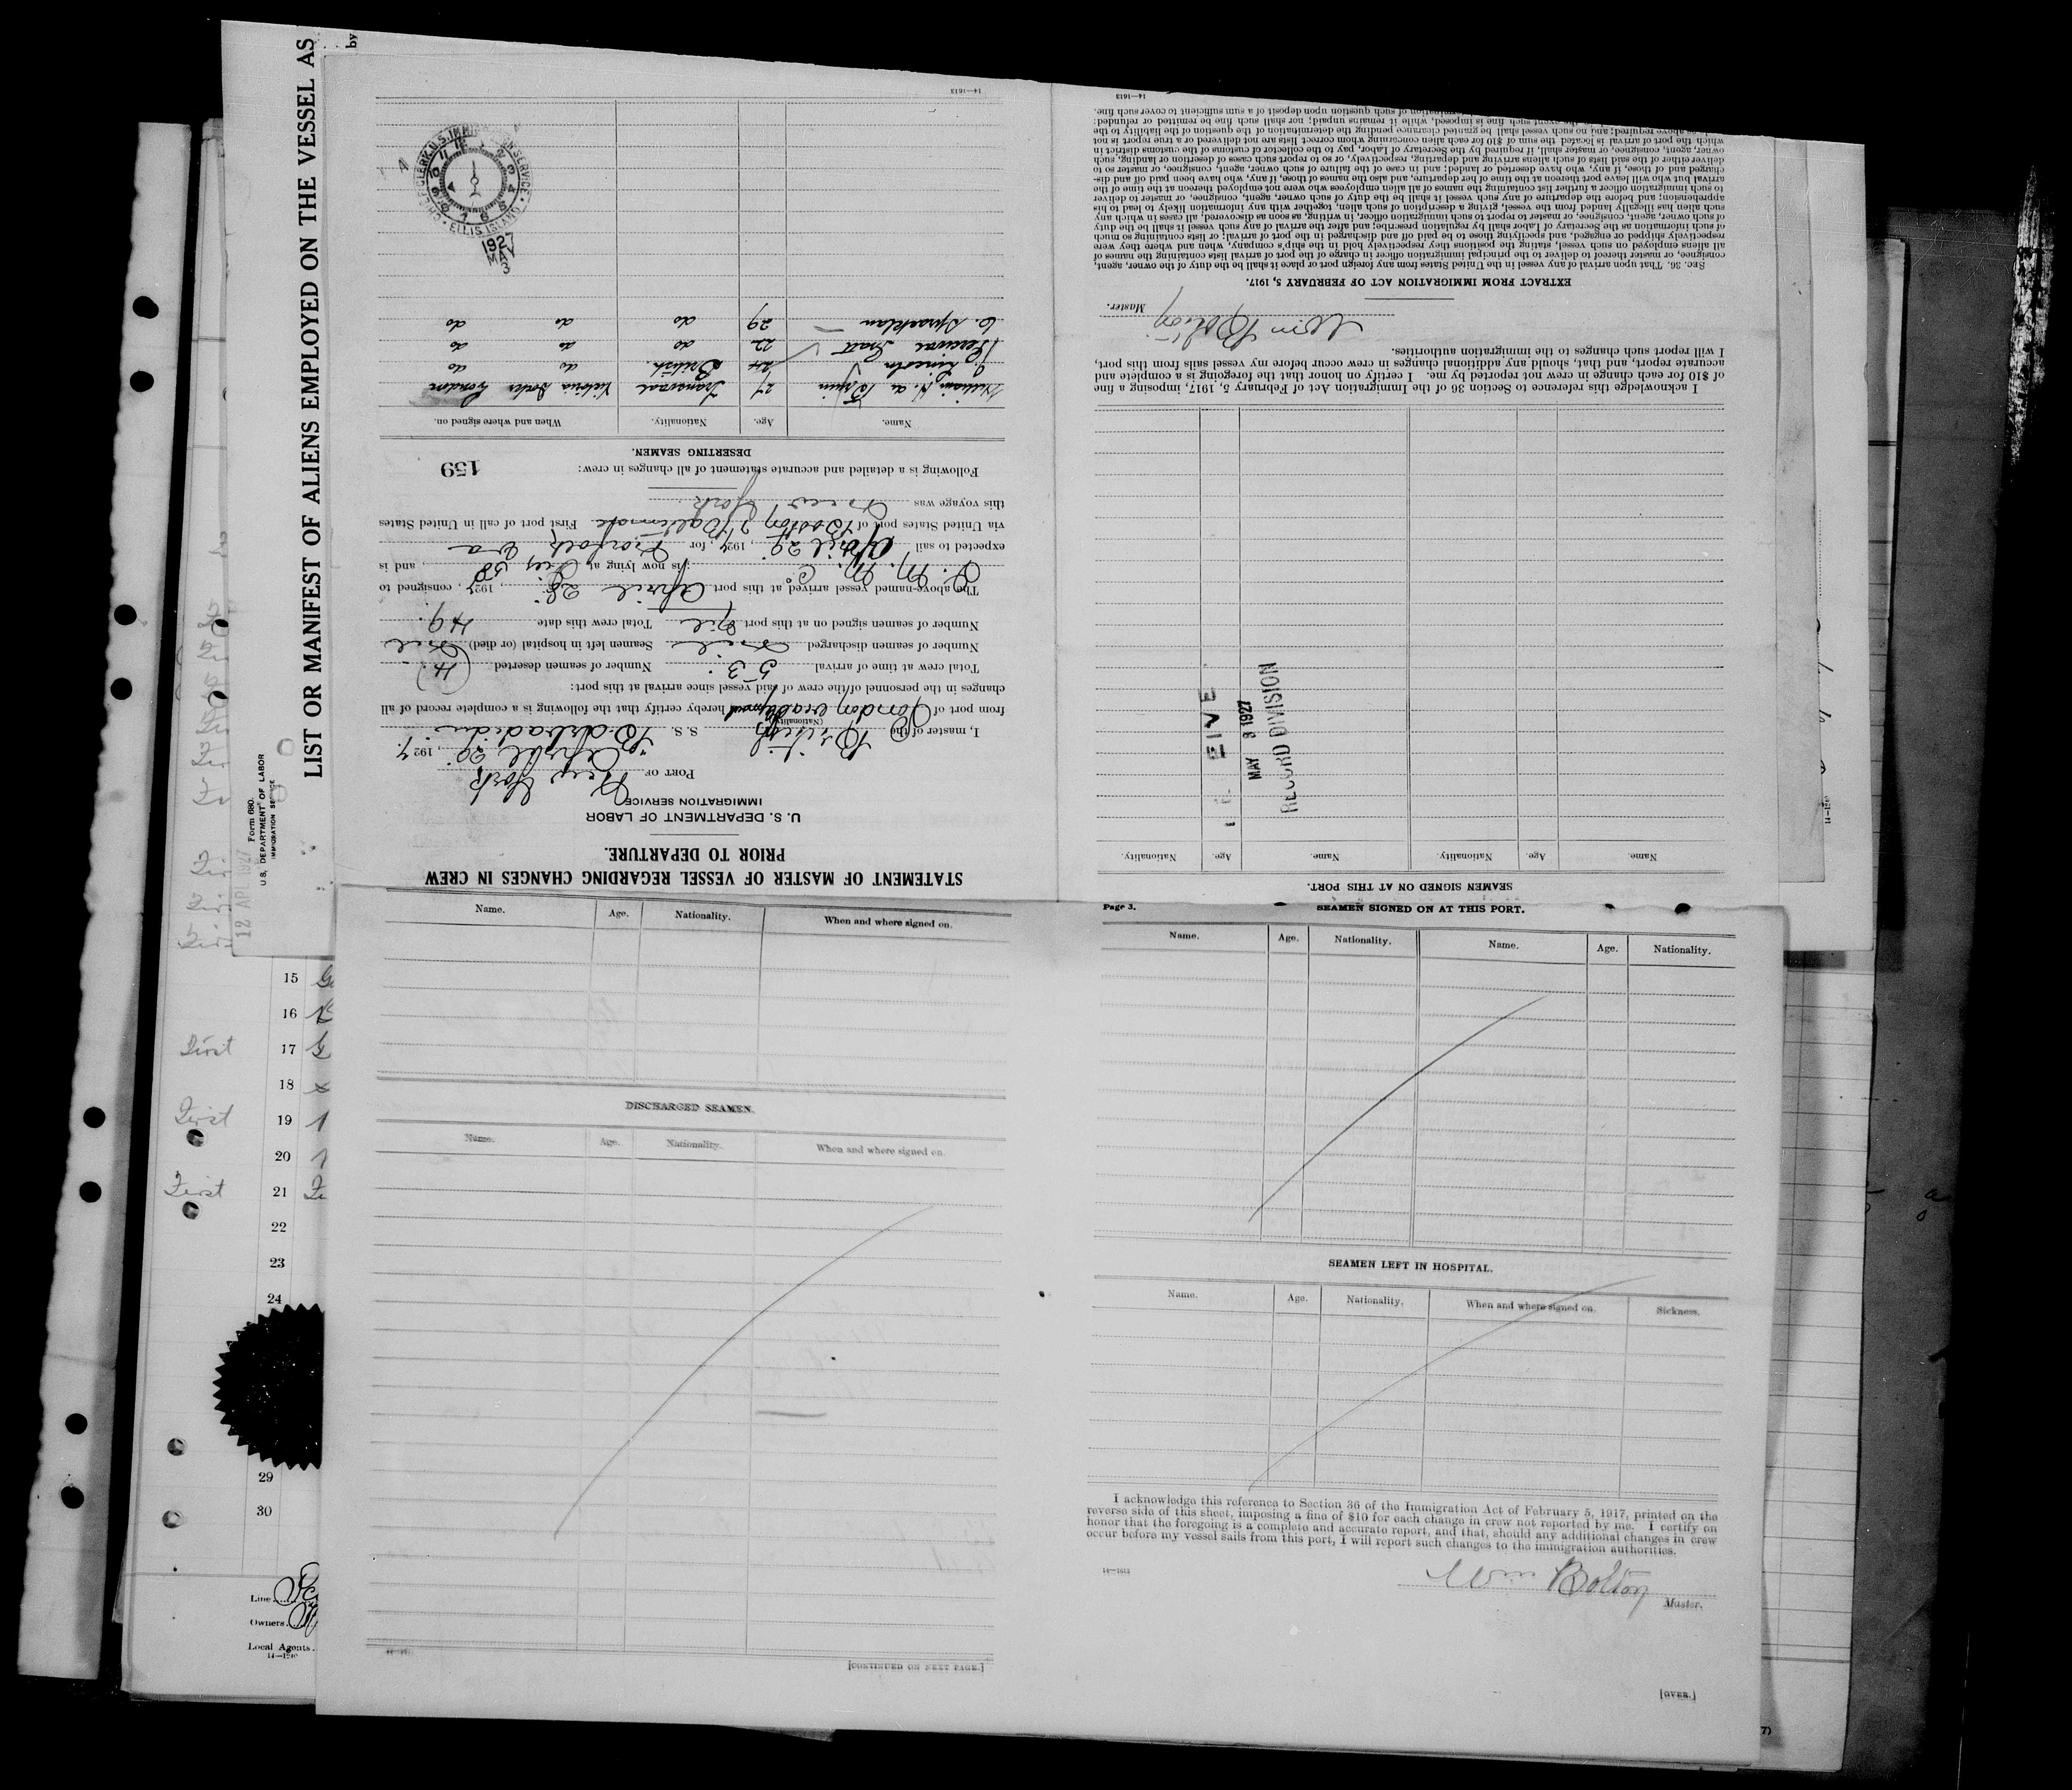 LIST OR MANIFEST OF ALIENS EMPLOYED ON THE VESSEL AS
by
Form 680.
U.S. DEPARTMENT OF LABOR
IMMIGRATION SERVICE
12 APR 1927
STATEMENT OF MASTER OF VESSEL REGARDING CHANGES IN CREW
PRIOR TO DEPARTURE.
U. S. DEPARTMENT OF LABOR
IMMIGRATION SERVICE
PORT OF New York
April 29, 1927.
I, master of the British S. S. Barbadian
(Nationality)
from port of London hereby certify that the following is a complete record of all
changes in the personnel of the crew of said vessel since arrival at this port:
Total crew at time of arrival 53. Number of seamen deserted (4).
Number of seamen discharged Nil Seamen left in hospital (or died) Nil
Number of seamen signed on at this port Nil Total crew this date 49.
The above-named vessel arrived at this port April 28, 1927, consigned to
I. M. M. Co.; is now lying at Pier 58, and is
expected to sail April 29, 1927, for Norfolk, Va
via United States port of Boston & Baltimore. First port of call in United States
this voyage was New York.
Following is a detailed and accurate statement of all changes in crew:
159
DESERTING SEAMEN.
Name. Age. Nationality. When and where signed on.
William H. a. 27 Transvaal Victoria Docks London
G. Lincoln 24 British do do
Percival Gratt 22 do do do
C. Spracklan 29 do do do
CHIEF CLERK, U.S. IMMIGRATION SERVICE
ELLIS ISLAND
1927
MAY
3
14—1613
SEAMEN SIGNED ON AT THIS PORT.
Name. Age. Nationality. Name. Age. Nationality.
MAY 3 1927
RECORD DIVISION
I acknowledge this reference to Section 36 of the Immigration Act of February 5, 1917, imposing a fine
of $10 for each change in crew not reported by me. I certify on honor that the foregoing is a complete and
accurate report, and that, should any additional changes in crew occur before my vessel sails from this port,
I will report such changes to the immigration authorities.
Wm Bolton
Master.
EXTRACT FROM IMMIGRATION ACT OF FEBRUARY 5, 1917.
SEC. 36. That upon arrival of any vessel in the United States from any foreign port or place it shall be the duty of the owner, agent,
consignee, or master thereof to deliver to the principal immigration officer in charge of the port of arrival lists containing the names of
all aliens employed on such vessel, stating the positions they respectively hold in the ship's company, when and where they were
respectively shipped or engaged, and specifying those to be paid off and discharged in the port of arrival; or lists containing so much
of such information as the Secretary of Labor shall by regulation prescribe; and after the arrival of any such vessel it shall be the duty
of such owner, agent, consignee, or master to report to such immigration officer, in writing, as soon as discovered, all cases in which any
such alien has illegally landed from the vessel, giving a description of such alien, together with any information likely to lead to his
apprehension; and before the departure of any such vessel it shall be the duty of such owner, agent, consignee, or master to deliver
to such immigration officer a further list containing the names of all alien employees who were not employed thereon at the time of the
arrival but who will leave port thereon at the time of her departure, and also the names of those, if any, who have been paid off and dis-
charged and of those, if any, who have deserted or landed; and in case of the failure of such owner, agent, consignee, or master so to
deliver either of the said lists of such aliens arriving and departing, respectively, or so to report such cases of desertion or landing, such
owner, agent, consignee, or master shall, if required by the Secretary of Labor, pay to the collector of customs of the customs district in
which the port of arrival is located the sum of $10 for each alien concerning whom correct lists are not delivered or a true report is not
made as above required; and no such vessel shall be granted clearance pending the determination of the question of the liability to the
event such fine is imposed, while it remains unpaid; nor shall such fine be remitted or refunded:
of such question upon deposit of a sum sufficient to cover such fine.
14—1613
Name. Age. Nationality. When and where signed on.
DISCHARGED SEAMEN.
Name. Age. Nationality. When and where signed on.
[CONTINUED ON NEXT PAGE.]
Page 3.
SEAMEN SIGNED ON AT THIS PORT.
Name. Age. Nationality. Name. Age. Nationality.
SEAMEN LEFT IN HOSPITAL.
Name. Age. Nationality. When and where signed on. Sickness.
I acknowledge this reference to Section 36 of the Immigration Act of February 5, 1917, printed on the
reverse side of this sheet, imposing a fine of $10 for each change in crew not reported by me. I certify on
honor that the foregoing is a complete and accurate report, and that, should any additional changes in crew
occur before my vessel sails from this port, I will report such changes to the immigration authorities.
14—1613
Wm Bolton
Master.
[OVER.]
15
16
First 17
18
First 19
20
First 21
22
23
24
29
30
Line
Owners
Local Agents
14—1240